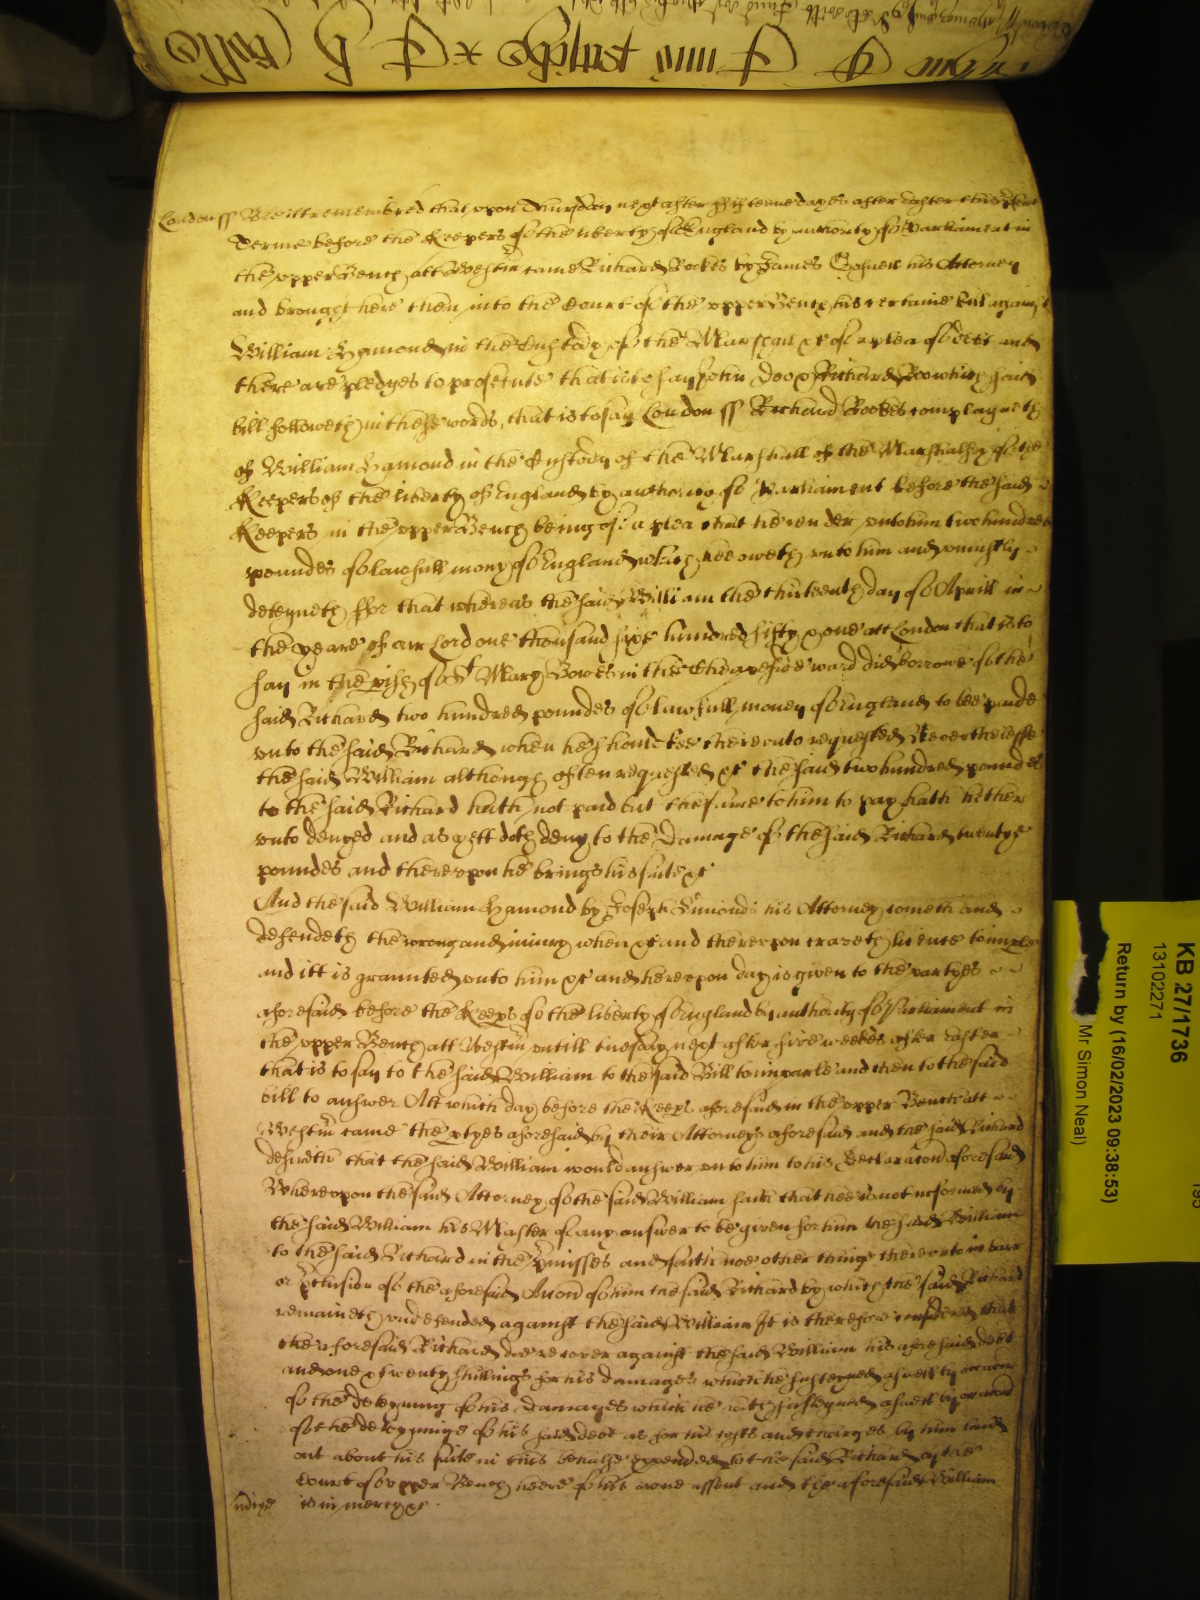 London ss Bee itt remembred that upon Thursday next after fifteene dayes after Easter this same
Terme before the Keepers of the liberty of England by authority of Parliament in
the upper Bench att Westm came Richard Rookes by James his Attorney
and brought here then into the Court of the upper Bench his certaine bill against
William Hamond in the Custody of the Marshall &c of a plea of debt and
there are pledges to prosecute that is to say John Doo & Richard Roo which said
bill followeth in these words, that is to say London ss Richard Rookes complayneth
of William Hamond in the Custody of the Marshall of the Marshalsey of the
Keepers of the liberty of England by authority of Parliament before the said
Keepers in the upper Bench being of a plea that he render unto him two hundred
poundes of lawfull mony of England which hee oweth unto him and uniustly
deteyneth ffor that whereas the said William the thirteenth day of Aprill in
the yeare of our Lord one thousand sixe hundred fifty & one att London that is to
say in the pish of St Mary Bowes in the Cheapeside ward did borrowe of the
said Richard two hundred poundes of lawfull money of England to bee paide
unto the said Richard when he should bee thereunto requested Neverthelesse
the said William although often requested &c the said two hundred poundes
to the said Richard hath not paid but the same to him to pay hath hither
unto denyed and as yett doth deny to the Damage of the said Richard twenty
poundes and thereupon he brings his suite &c
And the said William Hamond by Joseph Simonds his Attorney cometh and
defendeth the wrong and iniury when &c and thereupon craveth licence to imple
and itt is graunted unto him &c and hereupon day is given to the partyes
aforesaid before the Keeps of the liberty of England by authority of Parliament in
the upper Bench att Westm untill tuesday next after five weekes after Easter
that is to say to the said William to the said Bill to imparle and then to the said
bill to answer Att which day before the Keeps aforesaid in the upper Bench att
Westm came the ptyes aforesaid by their Attorneys aforesaid and the said Richard
desireth that the said William would answer unto him to his Declaracon aforesaid
Whereupon the said Attorney of the said William saith that hee is not informed by
the said William his Master of any answer to be given for him the said William
to the said Richard in the pmisses and saith noe other thinge thereunto in barr
or pclusion of the aforesaid Accon of him the said Richard by which the said Richard
remaineth undefended against the said William It is therefore considered that
the aforesaid Richard doe recover against the said William his aforesaid debt
and one & twenty shillings for his damages which he susteyned aswell by occacon
of the deteyning of his damages which he hath susteyned aswell by occacon
of the deteyninge of his said debt as for his costs and charges by him laid
out about his suite in this behalfe expended to the said Richard by the
Court of upper Bench heere of his owne assent and the aforesaid William
is in mercy &c